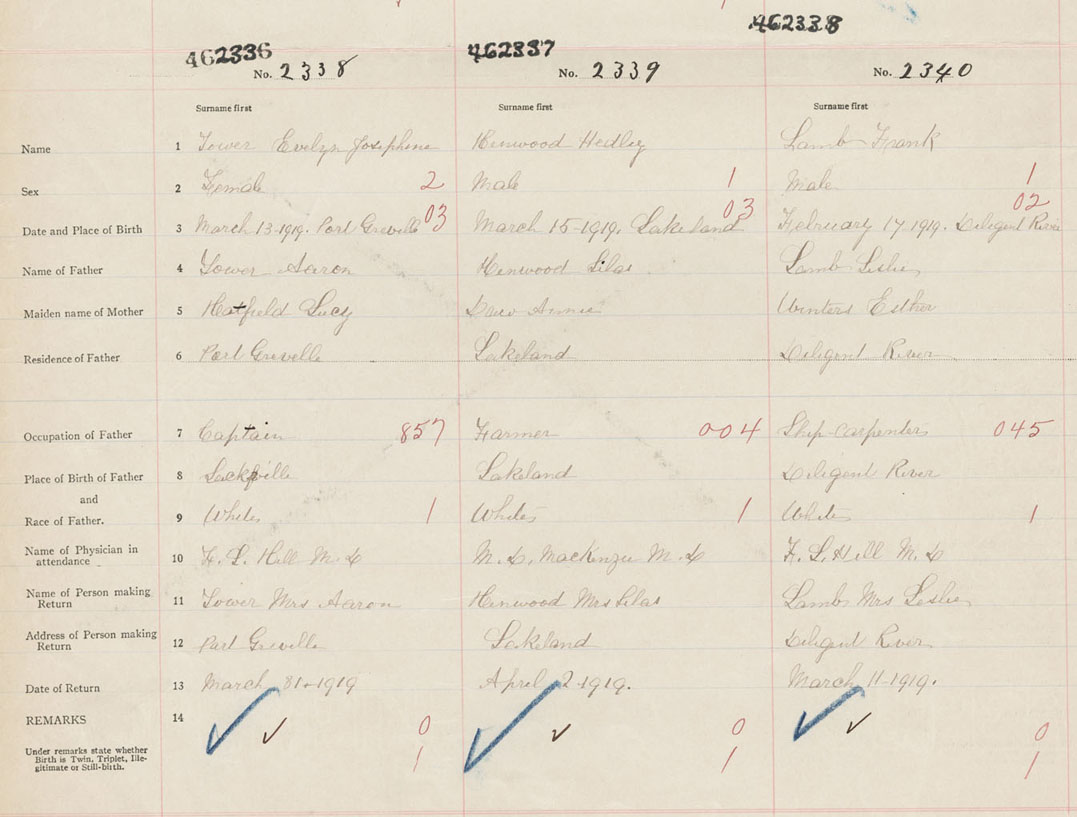 462336 462337 462338
No. 2338 No. 2339 No. 2340
Surname first Surname first Surname first
Name 1 Tower Evelyn Josephine Henwood Hedley Lamb Frank
Sex 2 Female 2 Male 1 Male 1
03 03 02
Date and Place of Birth 3 March 13-1919. Port Greville March 15-1919. Lakeland February 17-1919. Diligent River
Name of Father 4 Tower Aaron Henwood Silas Lamb Leslie
Maiden name of Mother 5 Hatfield Lucy Annie Winters Esther
Residence of Father 6 Port Greville Lakeland Diligent River
Occupation of Father 7 Captain 857 Farmer 004 Ship-carpenter 045
Place of Birth of Father 8 Sackville Lakeland Diligent River
and
Race of Father. 9 White 1 White 1 White 1
Name of Physician in
attendance 10 H. L. Hill M. D M. D. MacKenzie M. D H. L. Hill M. D
Name of Person making
Return 11 Tower Mrs Aaron Henwood Mrs Silas Lamb Mrs Leslie
Address of Person making
Return 12 Port Greville Lakeland Diligent River
Date of Return 13 March 31-1919 April 2-1919. March 11-1919.
REMARKS 14 ✓ ✓ 0 ✓ ✓ 0 ✓ ✓ 0
Under remarks state whether
Birth is Twin, Triplet, Ille-
gitimate or Still-birth. 1 1 1